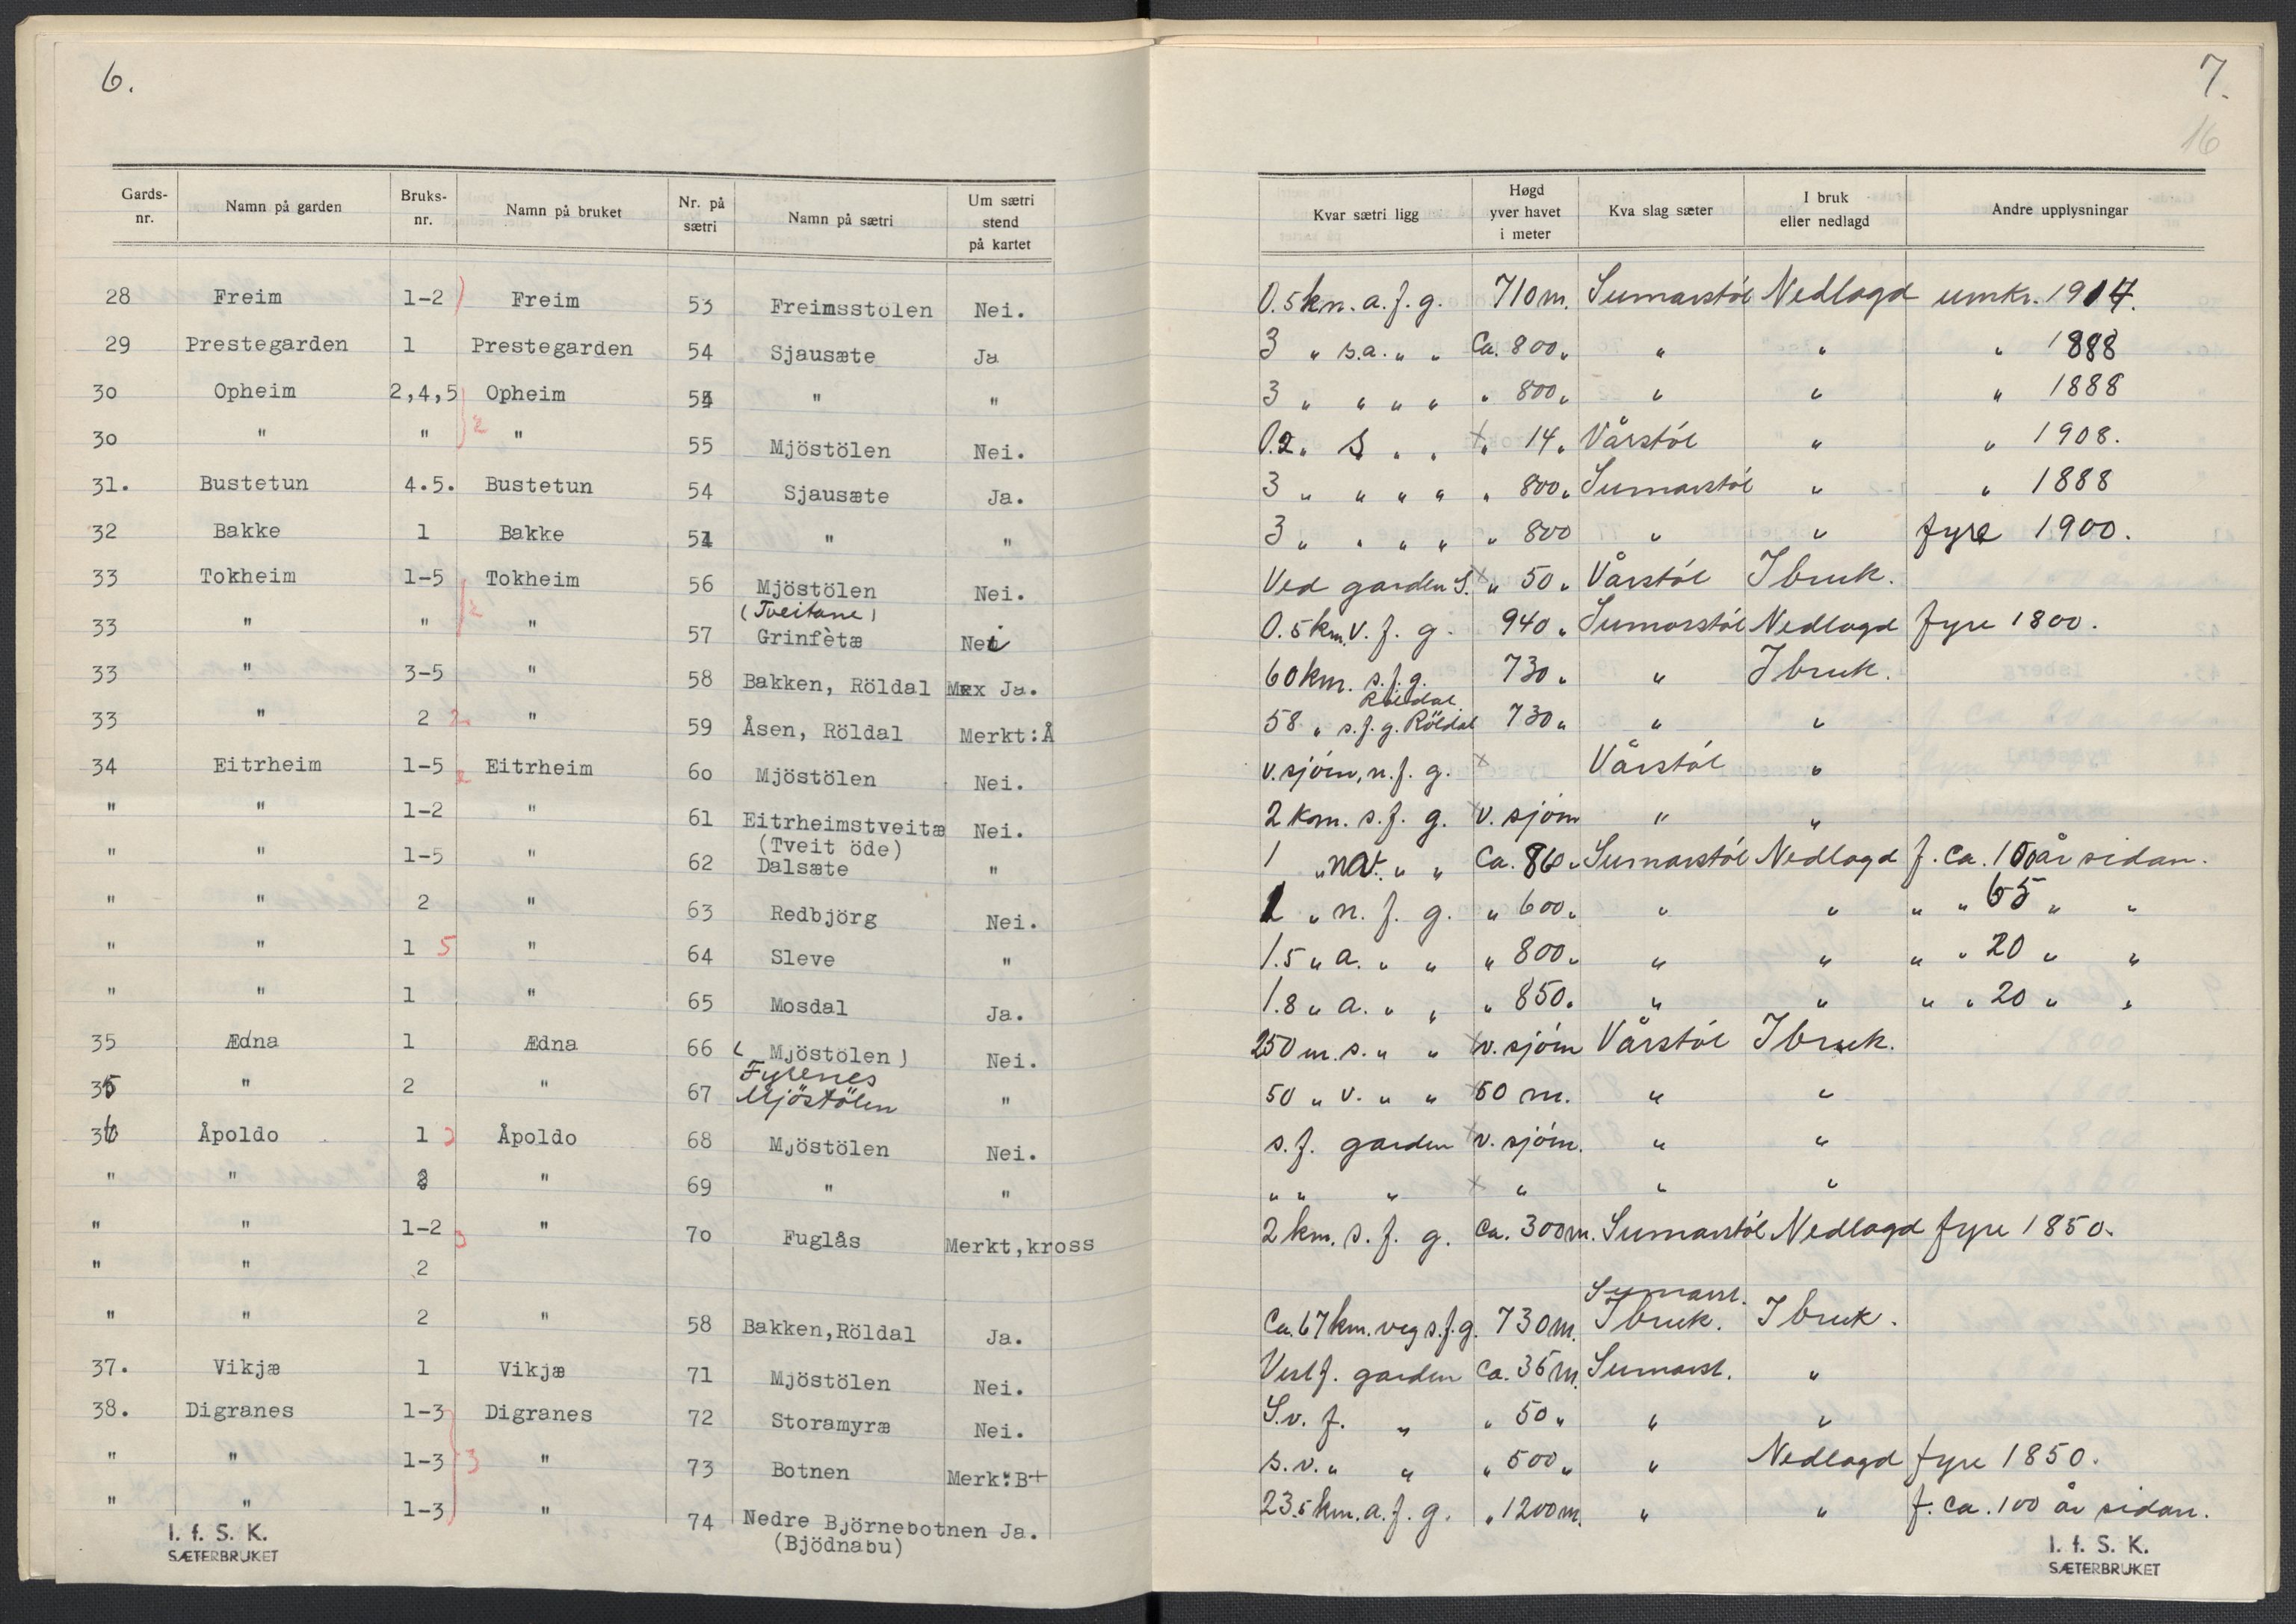 6.
Gards-nr. | Namn på garden | Bruks-nr. | Namn på bruket | Nr. på sætri | Namn på sætri | Um sætri stend på kartet
28 Freim 1-2 Freim 53 Freimsstölen Nei.
29 Prestegarden 1 Prestegarden 54 Sjausæte Ja
30 Opheim 2,4,5 Opheim 54 " "
30 " " 2 " 55 Mjöstölen Nei.
31. Bustetun 4.5. Bustetun 54 Sjausæte Ja.
32 Bakke 1 Bakke 54 " "
33 Tokheim 1-5 Tokheim 56 Mjöstölen Nei.
(Tveitane)
33 " " 2 " 57 Grinfètæ Nei
33 " 3-5 " 58 Bakken, Röldal Ja.
33 " 2 2 " 59 Åsen, Röldal Merkt:Å
34 Eitrheim 1-5 2 Eitrheim 60 Mjöstölen Nei.
" " 1-2 " 61 Eitrheimstveitæ Nei.
(Tveit öde)
" " 1-5 " 62 Dalsæte "
" " 2 " 63 Redbjörg Nei.
" " 1 5 " 64 Sleve "
" " 1 " 65 Mosdal Ja.
35 Ædna 1 Ædna 66 (Mjöstölen) Nei.
Fyrenes
35 " 2 " 67 Mjöstölen "
36 Åpoldo 1 Åpoldo 68 Mjöstölen Nei.
" " 2 " 69 " "
" " 1-2 3 " 70 Fuglås Merkt,kross
" " 2
" " 2 " 58 Bakken,Röldal Ja.
37. Vikjæ 1 Vikjæ 71 Mjöstölen Nei.
38. Digranes 1-3 Digranes 72 Storamyræ Nei.
" " 1-3 3 " 73 Botnen Merk:B+
" " 1-3 " 74 Nedre Björnebotnen Ja.
(Bjödnabu)
I. f. S. K.
SÆTERBRUKET
7.
16
Kvar sætri ligg | Høgd yver havet i meter | Kva slag sæter | I bruk eller nedlagd | Andre upplysningar
0.5 km. a. f. g. 710 m. Sumarstól Nedlagd umkr. 1917.
3 " s.a. " " Ca. 800 " " " " 1888
3 " " " " " 800 " " " " 1888
0.2 " s " " " 14 " Vårstól " " 1908.
3 " " " " " 800 " Sumarstól " " 1888
3 " " " " " 800 " " fyre 1900.
Ved garden S. " 50 " Vårstól I bruk.
0.5 km. v. f. g. 940 " Sumarstól Nedlagd fyre 1800.
60 km. s. f. g. 730 " " I bruk.
Röldal.
58 " s. f. g. Röldal 730 " " "
v. sjóin, n. f. g. Vårstól "
2 km. s. f. g. v. sjóin " "
1 " nv. " " Ca. 860 " Sumarstól Nedlagd f. ca. 100 år sidan.
1 " n. f. g. " 600 " " " " " 65 " "
1.5 " a. " " " 800 " " " " " 20 " "
1.8 " a. " " " 850 " " " " " 20 " "
250 m. s. " " v. sjóin Vårstól I bruk.
50 " v. " " 50 m. " "
s. f. garden v. sjóin. " "
" " " " " "
2 km. s. f. g. ca. 300 m. Sumarstól Nedlagd fyre 1850.
Sumarst.
Ca. 67 km. veg s. f. g. 730 m. I bruk. I bruk.
Vest f. garden Ca. 35 m. Sumarst. "
S.v. f. " " 50 " " "
s. v. " " " 500 " " Nedlagd fyre 1850.
23.5 km. a. f. g. " 1200 m. " " f. ca. 100 år sidan.
I. f. S. K.
SÆTERBRUKET